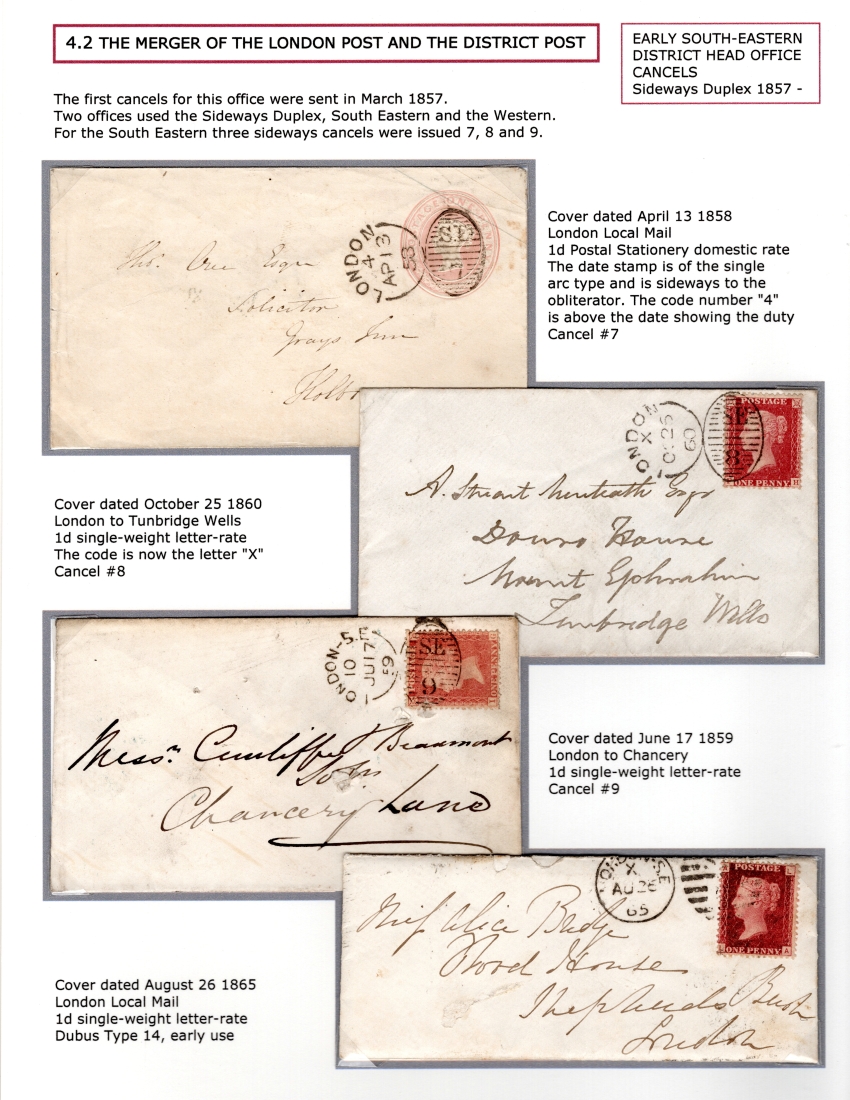 4.2 THE MERGER OF THE LONDON POST AND THE DISTRICT POST
EARLY SOUTH-EASTERN
DISTRICT HEAD OFFICE
CANCELS
Sideways Duplex 1857 -
The first cancels for this office were sent in March 1857.
Two offices used the Sideways Duplex, South Eastern and the Western.
For the South Eastern three sideways cancels were issued 7, 8 and 9.
LONDON
4
AP 13
58
S.E
7
Esqr
Solicitor
Grays Inn
Cover dated April 13 1858
London Local Mail
1d Postal Stationery domestic rate
The date stamp is of the single
arc type and is sideways to the
obliterator. The code number "4"
is above the date showing the duty
Cancel #7
LONDON
X
OC 25
60
SE
8
POSTAGE
ONE PENNY
A. Stuart Menteath Esqr
Douro House
Mount Ephraim
Tunbridge Wells
Cover dated October 25 1860
London to Tunbridge Wells
1d single-weight letter-rate
The code is now the letter "X"
Cancel #8
LONDON-S.E
10
JU 17
59
SE
9
Messrs Cunliffe & Beaumont
Chancery Lane
Cover dated June 17 1859
London to Chancery
1d single-weight letter-rate
Cancel #9
LONDON-S.E
X
AU 26
65
POSTAGE
ONE PENNY
Miss Alice Budge
Wood House
Shepherds Bush
London
Cover dated August 26 1865
London Local Mail
1d single-weight letter-rate
Dubus Type 14, early use